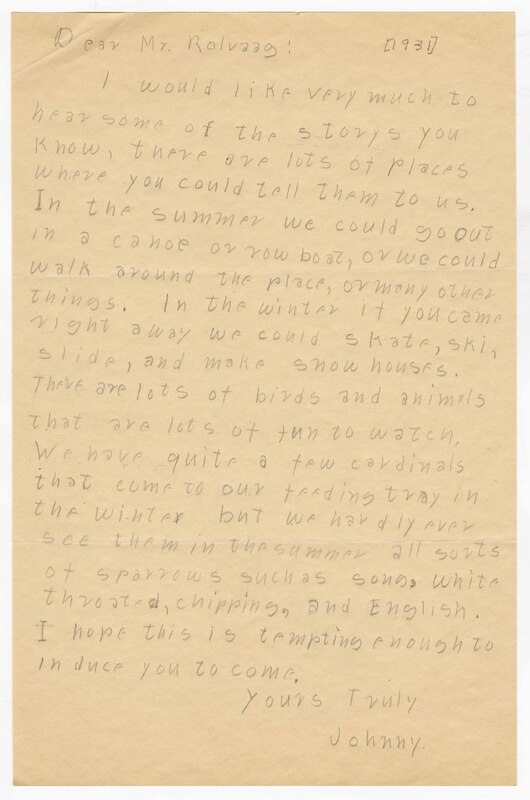 Dear Mr. Rolvaag! [1931]
I would like very much to
hear some of the storys you
know, there are lots of places
where you could tell them to us.
In the summer we could go out
in a canoe or row boat, or we could
walk around the place, or many other
things. In the winter if you came
right away we could skate, ski,
slide, and make snow houses.
There are lots of birds and animals
that are lots of fun to watch.
We have quite a few cardinals
that come to our feeding tray in
the winter but we hardly ever
see them in the summer all sorts
of sparrows such as song, white
throated, chipping, and English.
I hope this is tempting enough to
induce you to come.
Yours Truly
Johnny.